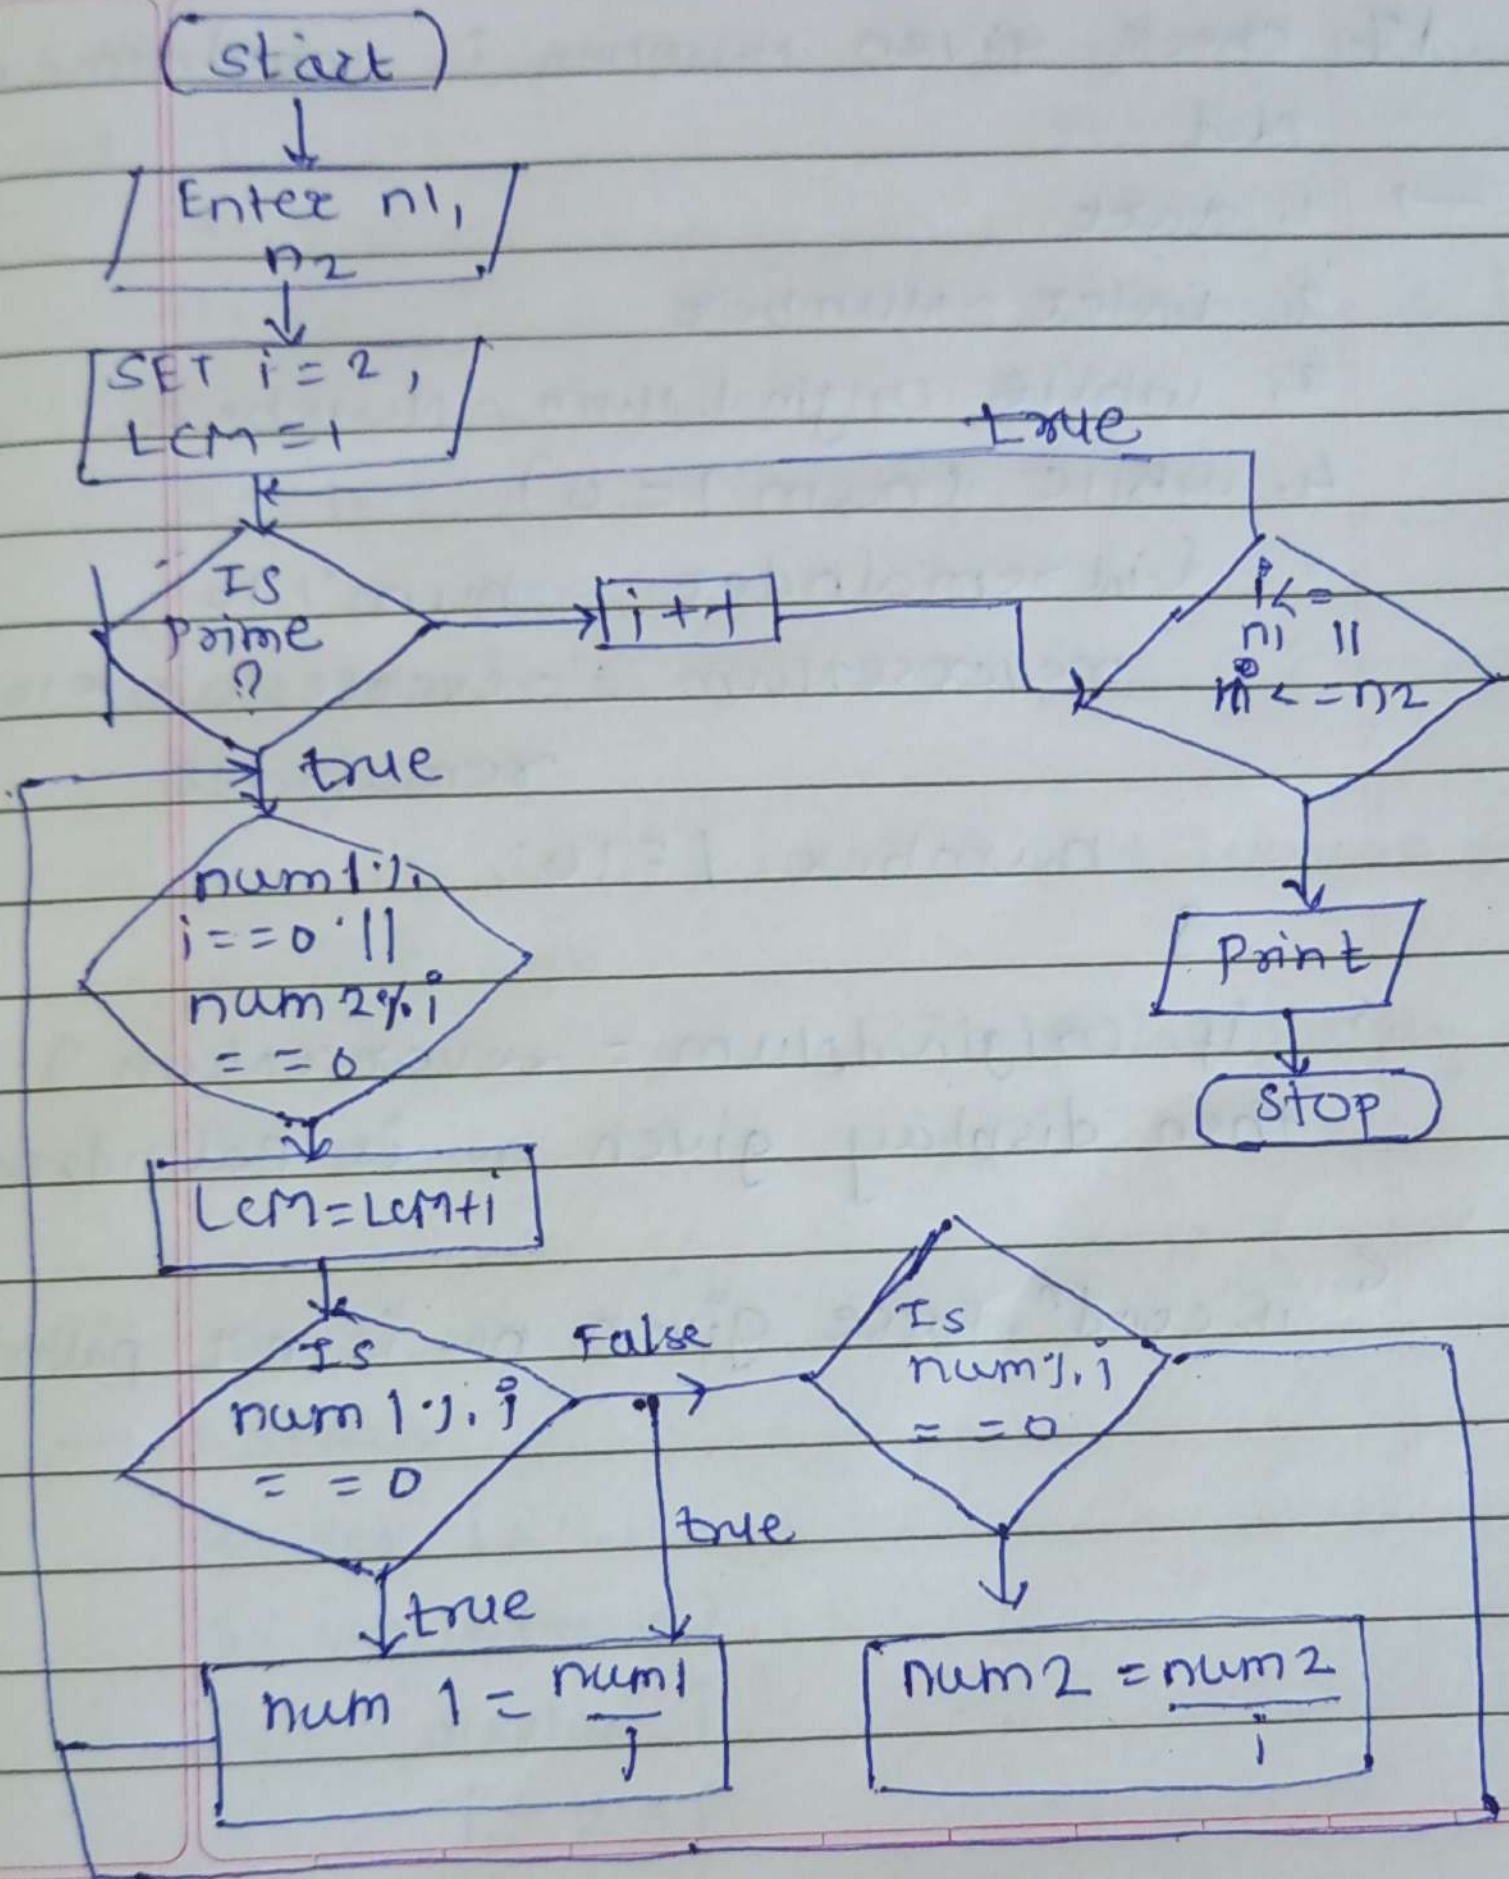 Start
Enter n1,
n2
SET i = 2,
LCM = 1
true
Is
Prime
?
i++
i<=
n1 ||
i<=n2
true
num1%
i==0 ||
num2%i
==0
Print
Stop
LCM=LCM+i
Is
num1%i
==0
False
Is
num%i
==0
true
true
num1 = num1
i
num2 = num2
i